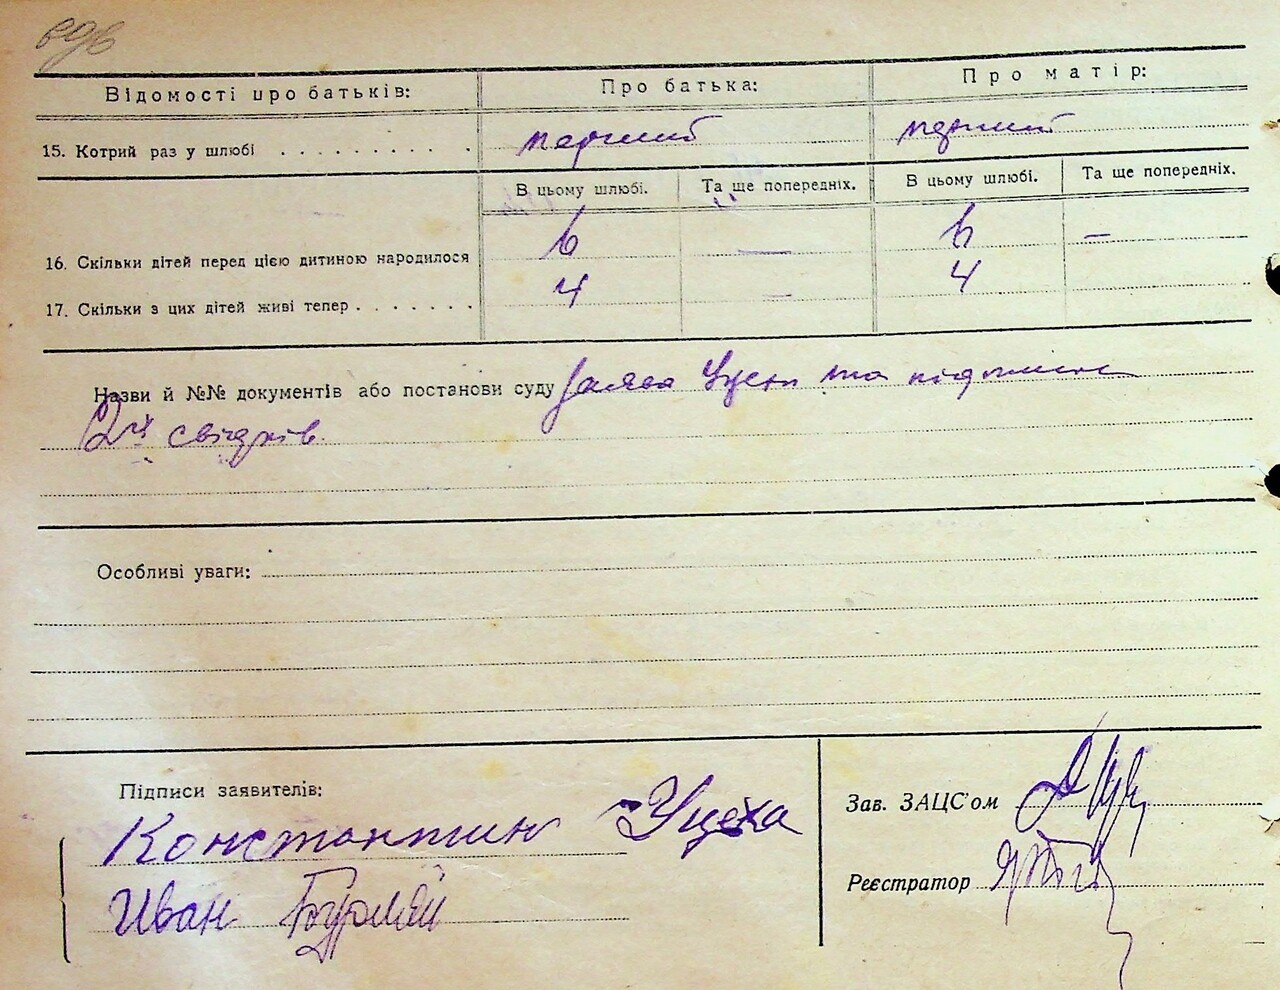 Відомості про батьків: Про батька: Про матір:
15. Котрий раз у шлюбі . . . . . . . . . . перший перший
В цьому шлюбі. Та ще попередніх. В цьому шлюбі. Та ще попередніх.
16. Скільки дітей перед цією дитиною народилося 6 — 6 —
17. Скільки з цих дітей живі тепер . . . . . . . 4 — 4
Назви й №№ документів або постанови суду заява та підписи
2х свідків.
Особливі уваги:
Підписи заявителів:
Константин Уцеха
Иван
Зав. ЗАЦС'ом
Реєстратор